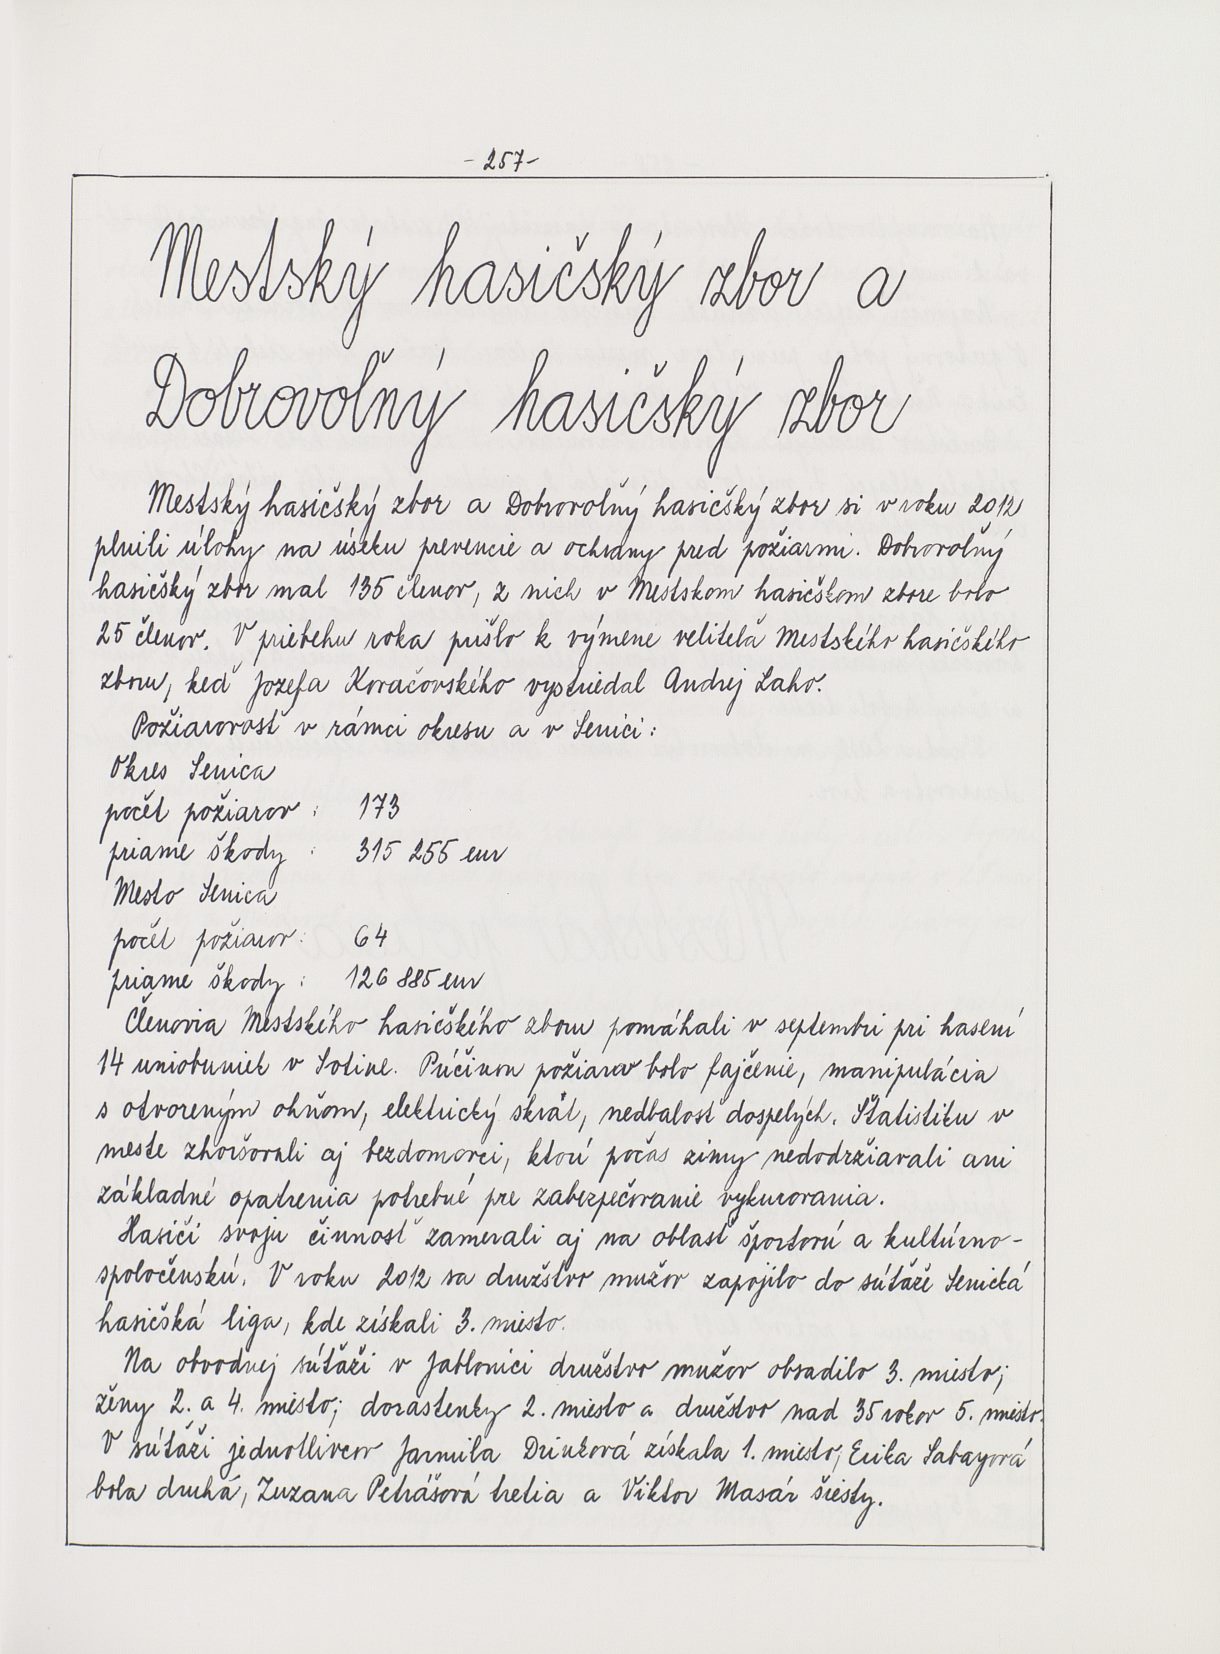 - 257 -
Mestský hasičský zbor a
Dobrovoľný hasičský zbor
Mestský hasičský zbor a Dobrovoľný hasičský zbor si v roku 2012
plnili úlohy na úseku prevencie a ochrany pred požiarmi. Dobrovoľný
hasičský zbor mal 135 členov, z nich v Mestskom hasičskom zbore bolo
25 členov. V priebehu roka prišlo k výmene veliteľa Mestského hasičského
zboru, keď Jozefa Kovačovského vystriedal Andrej Laho.
Požiarovosť v rámci okresu a v Senici:
Okres Senica
počet požiarov : 173
priame škody : 315 255 eur
Mesto Senica
počet požiarov : 64
priame škody : 126 885 eur
Členovia Mestského hasičského zboru pomáhali v septembri pri hasení
14 uniobuniek v Sotine. Príčinou požiarov bolo fajčenie, manipulácia
s otvoreným ohňom, elektrický skrat, nedbalosť dospelých. Štatistiku v
meste zhoršovali aj bezdomovci, ktorí počas zimy nedodržiavali ani
základné opatrenia potrebné pre zabezpečovanie vykurovania.
Hasiči svoju činnosť zamerali aj na oblasť športovú a kultúrno-
spoločenskú. V roku 2012 sa družstvo mužov zapojilo do súťaže Senická
hasičská liga, kde získali 3. miesto.
Na obvodnej súťaži v Jablonici družstvo mužov obsadilo 3. miesto;
ženy 2. a 4. miesto; dorastenky 2. miesto a družstvo nad 35 rokov 5. miesto.
V súťaži jednotlivcov Jarmila Drinková získala 1. miesto, Erika Sabayová
bola druhá, Zuzana Petrášová tretia a Viktor Masár šiesty.